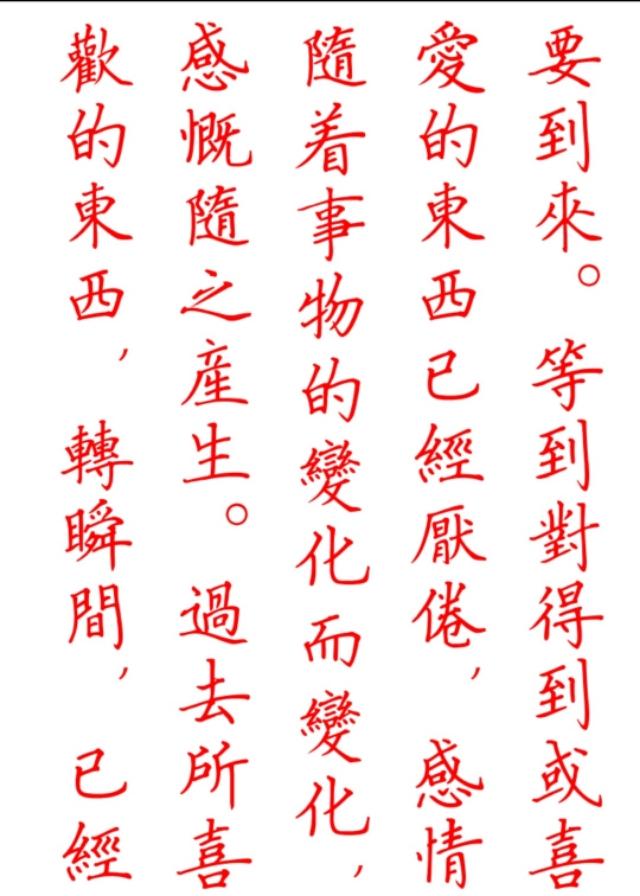 要到來。等到對得到或喜
愛的東西已經厭倦，感情
隨着事物的變化而變化，
感慨隨之產生。過去所喜
歡的東西，轉瞬間，已經